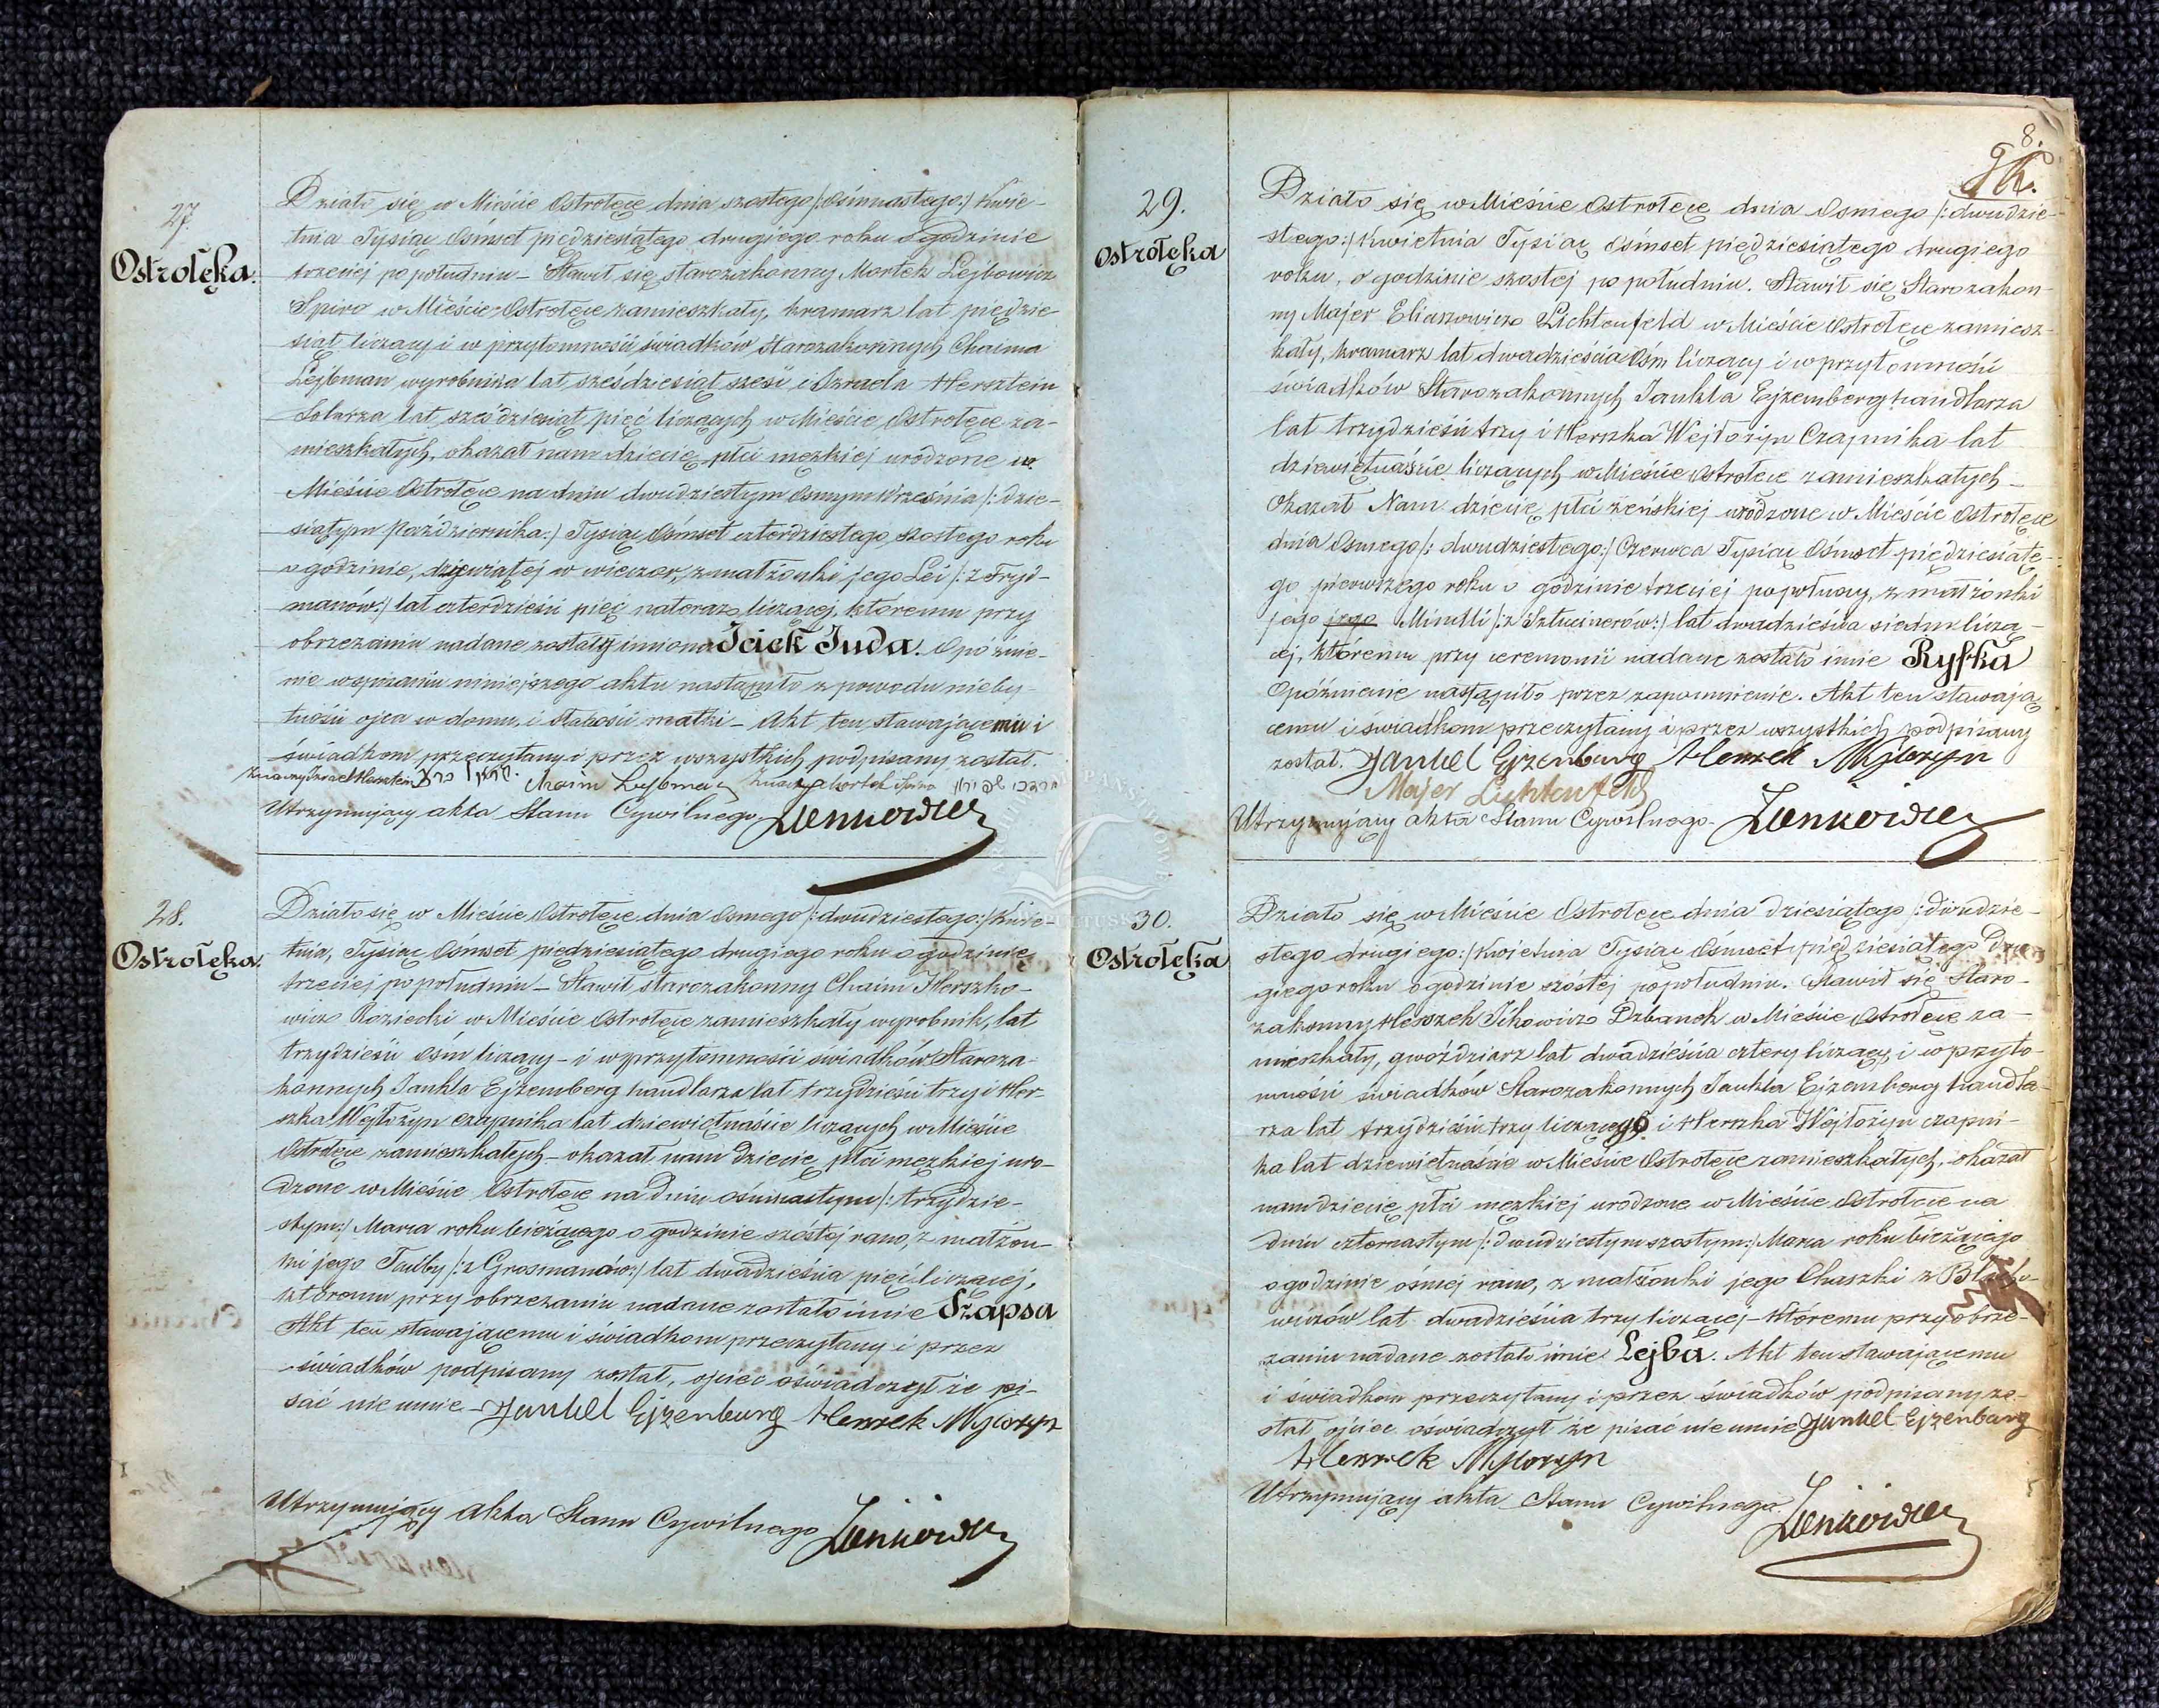 27.
Ostrołęka.
Działo się w Mieście Ostrołęce dnia szóstego /:Ośmnastego:/ Kwie-
tnia Tysiąc Ośmset piędziesiątego drugiego roku o godzinie
trzeciej po południu – Stawił się starozakonny Mortek Lejbowicz
Spiro w Mieście Ostrołęce zamieszkały, kramarz lat piędzie
siąt liczący i w przytomności świadków Starozakonnych Chaima
Lejbman wyrobnika lat sześdziesiąt sześć i Izraela Hersztein
Solarza lat sześdziesiąt pięć liczących w Mieście Ostrołęce za-
mieszkałych, okazał nam dziecię płci mezkiej urodzone w
Mieście Ostrołęce na dniu dwudziestym Osmym Września /:dzie-
siątym Października:/ Tysiąc Ośmset czterdziestego szóstego roku
o godzinie, dziewiątej w wieczor, z małżonki jego Lei /:z Fryd-
manów:/ lat czterdzieści pięć nateraz liczącej, któremu przy
obrzezaniu nadane zostały imiona Icick Juda. Opóźnie-
nie w spisaniu niniejszego aktu nastąpiło z powodu nieby-
tności ojca w domu, i słabości matki – Akt ten stawającemu i
świadkom przeczytany i przez wszystkich podpisany został.
Izrael Hersztein Chaim Lejbman Mortek Spiro
Utrzymujący akta Stanu Cywilnego
28.
Ostrołęka.
Działo się w Mieście Ostrołęce dnia Osmego /:dwudziestego:/ Kwie-
tnia, Tysiąc Ośmset piędziesiątego drugiego roku o godzinie
trzeciej po południu – Stawił starozakonny Chaim Herszko-
wicz Koziecki w Mieście Ostrołęce zamieszkały wyrobnik, lat
trzydzieści Ośm liczący – i w przytomności świadków Staroza-
konnych Jankla Ejzemberg handlarza lat trzydzieści trzy i Her-
szka Wejłożyn czapnika lat dziewiętnaście liczących w Mieście
Ostrołęce zamieszkałych – okazał nam dziecię płci mezkiej uro-
dzone w Mieście Ostrołęce na dniu ośmnastym /:trzydzie-
stym:/ Marca roku bieżącego o godzinie szóstej rano, z małżon-
ki jego Tauby /:z Grosmanów:/ lat dwadzieścia pięć liczącej,
któremu przy obrzezaniu nadane zostało imie Szapsa
Akt ten stawającemu i świadkom przeczytany i przez
świadków podpisany został, ojciec oświadczył że pi-
sać nie umie – Jankel Ejzenberg Herszek
Utrzymujący akta Stanu Cywilnego
8.
29.
Ostrołęka
Działo się w Mieście Ostrołęce dnia Osmego /:dwudzie-
stego:/ Kwietnia Tysiąc Ośmset piędziesiątego drugiego
roku, o godzinie szóstej po południu. Stawił się Starozakon-
ny Majer Eliaszowicz Lichtenfeld w Mieście Ostrołęce zamiesz-
kały, kramarz lat dwadzieścia Ośm liczący i w przytomności
świadków Starozakonnych Jankla Ejzemberg handlarza
lat trzydzieści trzy i Herszka Wejłożyn Czapnika lat
dziewiętnaście liczących w Mieście Ostrołęce zamieszkałych –
Okazał Nam dziecię płci żeńskiej urodzone w Mieście Ostrołęce
dnia Osmego /:dwudziestego:/ Czerwca Tysiąc Ośmset piędziesiąte-
go pierwszego roku o godzinie trzeciej popołudniu, z małżonki
jego jego Mindli /:z Sztucinerów:/ lat dwadzieścia siedm liczą-
cej, któremu przy ceremonii nadane zostało imie Ryfka
Opóźnienie nastąpiło przez zapomnienie. Akt ten stawają
cemu i świadkom przeczytany i przez wszystkich podpisany
został. Jankel Ejzenberg Herszek
Majer Lichtenfeld
Utrzymujący akta Stanu Cywilnego
30.
Ostrołęka
Działo się w Mieście Ostrołęce dnia dziesiątego /:dwudzie-
stego drugiego:/ Kwietnia Tysiąc Ośmset piędziesiątego dru
giego roku o godzinie szóstej popołudniu. Stawił się Staro-
zakonny Herszek Ickowicz Dzbanek w Mieście Ostrołęce za-
mieszkały, gwoździarz lat dwadzieścia cztery liczący i w przyto-
mności świadków Starozakonnych Jankla Ejzemberg handla-
rza lat trzydzieści trzy liczącego i Herszka Wejłożyn czapni-
ka lat dziewiętnaście w Mieście Ostrołęce zamieszkałych, okazał
nam dziecię płci mezkiej urodzone w Mieście Ostrołęce na
dniu czternastym /:dwudziestym szóstym:/ Marca roku bieżącego
o godzinie ósmej rano, z małżonki jego Chaszki z
wiczów lat dwadzieścia trzy liczącej – któremu przy obrze-
zaniu nadane zostało imie Lejba. Akt ten stawającemu
i świadkom przeczytany i przez świadków podpisany zo-
stał ojciec oświadczył że pisać nie umie Jankel Ejzenberg
Herszek
Utrzymujący akta Stanu Cywilnego